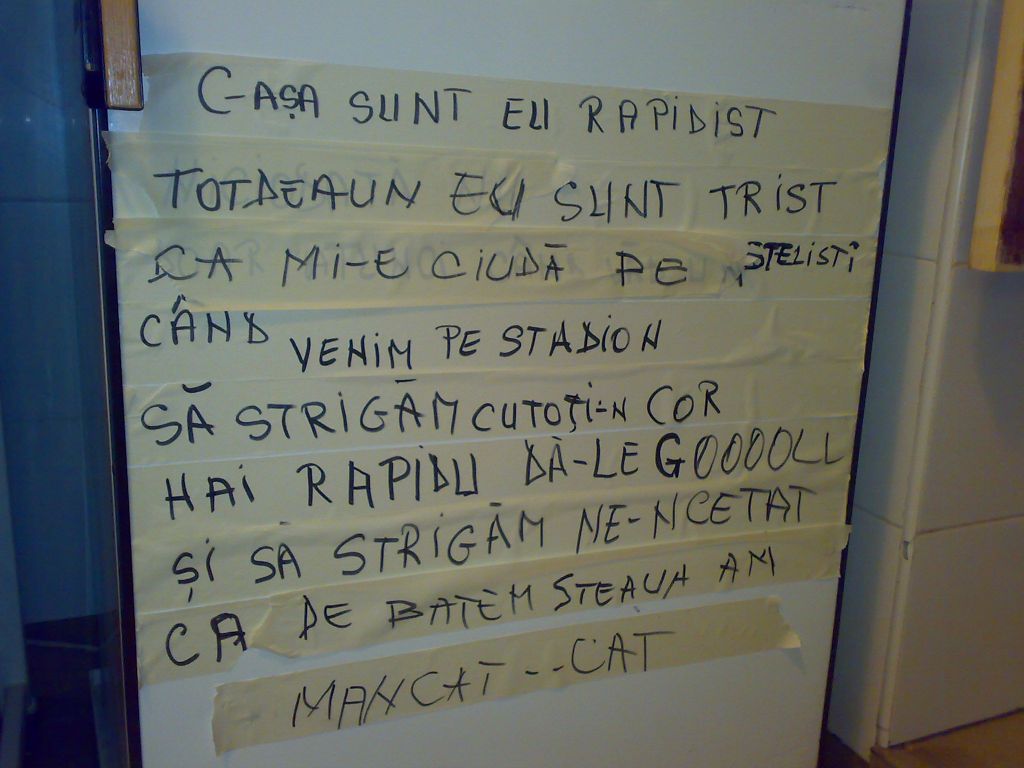 C-AȘA SUNT EU RAPIDIST
TOTDEAUN EU SUNT TRIST
CA MI-E CIUDĂ PE STELISTI
CÂND VENIM PE STADION
SĂ STRIGĂM CU TOȚI-N COR
HAI RAPIDU DĂ-LE GOOOOLL
ȘI SĂ STRIGĂM NE-NCETAT
CA DE BATEM STEAUA AM
MANCAT--CAT